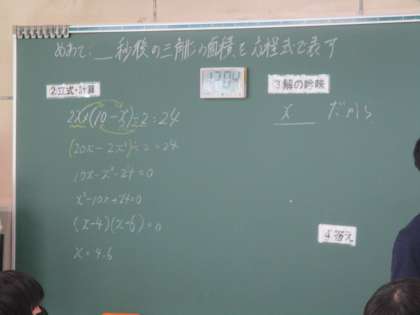 めあて:__秒後の三角形の面積を方程式で表す
2立式・計算
2x×(10-x)÷2=24
(20x-2x²)÷2=24
10x-x²-24=0
x²-10x+24=0
(x-4)(x-6)=0
x=4.6
3解の吟味
x だから
4答え